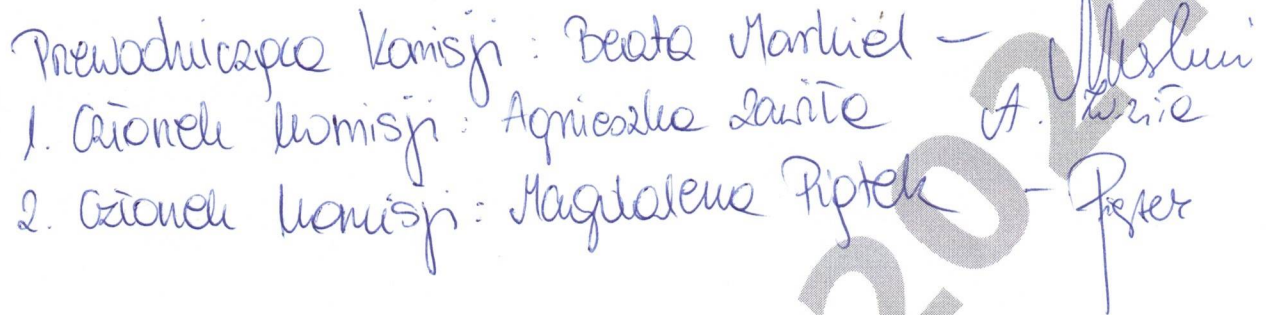 Przewodnicząca Komisji: Beata Markiel -
1. Członek komisji: Agnieszka Zawiła A. Zawiła
2. Członek komisji: Magdalena Piątek - Piątek
202